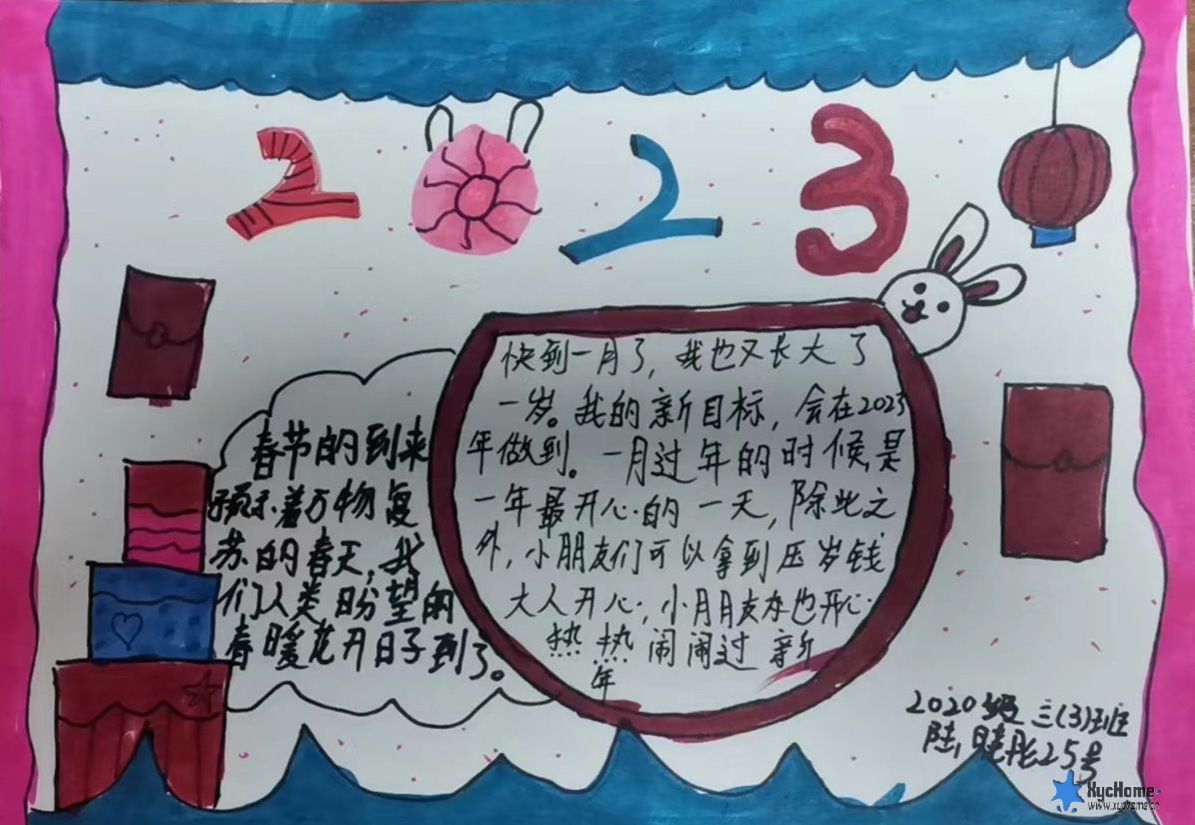 2023
春节的到来
预示着万物复
苏的春天,我
们人类盼望的
春暖花开日子到了。
快到一月了,我也又长大了
一岁。我的新目标,会在2023
年做到。一月过年的时候,是
一年最开心的一天,除此之
外,小朋友们可以拿到压岁钱
大人开心,小朋友也开心
热热闹闹过新
年
2020级三(3)班
陆 25号
XycHome